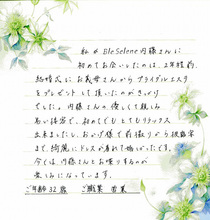 私がBleSelene内藤さんに
初めてお会いしたのは、2年程前、
結婚式にお義母さんからブライダルエステ
をプレゼントして頂いたのがきっかけ
でした。内藤さんの優しくて親しみ
易い接客で、初めてでもとてもリラックス
出来ましたし、おかげ様で前撮りから披露宴
まで、綺麗にドレスが着れて嬉しかったです。
今では、内藤さんとお喋りするのが
楽しみになっています。
ご年齢 32 歳 ご職業 営業